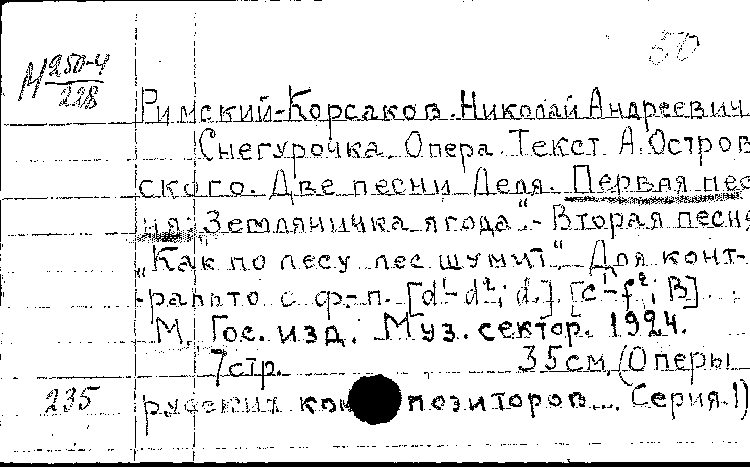 50
М 250-4
228
Римский-Корсаков. Николай Андреевич
Снегурочка. Опера. Текст А. Остров
ского. Две песни Леля. Первая пес
ня: Земляничка ягода".- Вторая песня
„Как по лесу лес шумит". Для конт-
ральто с ф.-п. [d¹-d²; d.] [c¹-f²; B]
М. Гос. изд. Муз. сектор. 1924.
7 стр. 35 см. (Оперы
235 русских композиторов... Серия 1)